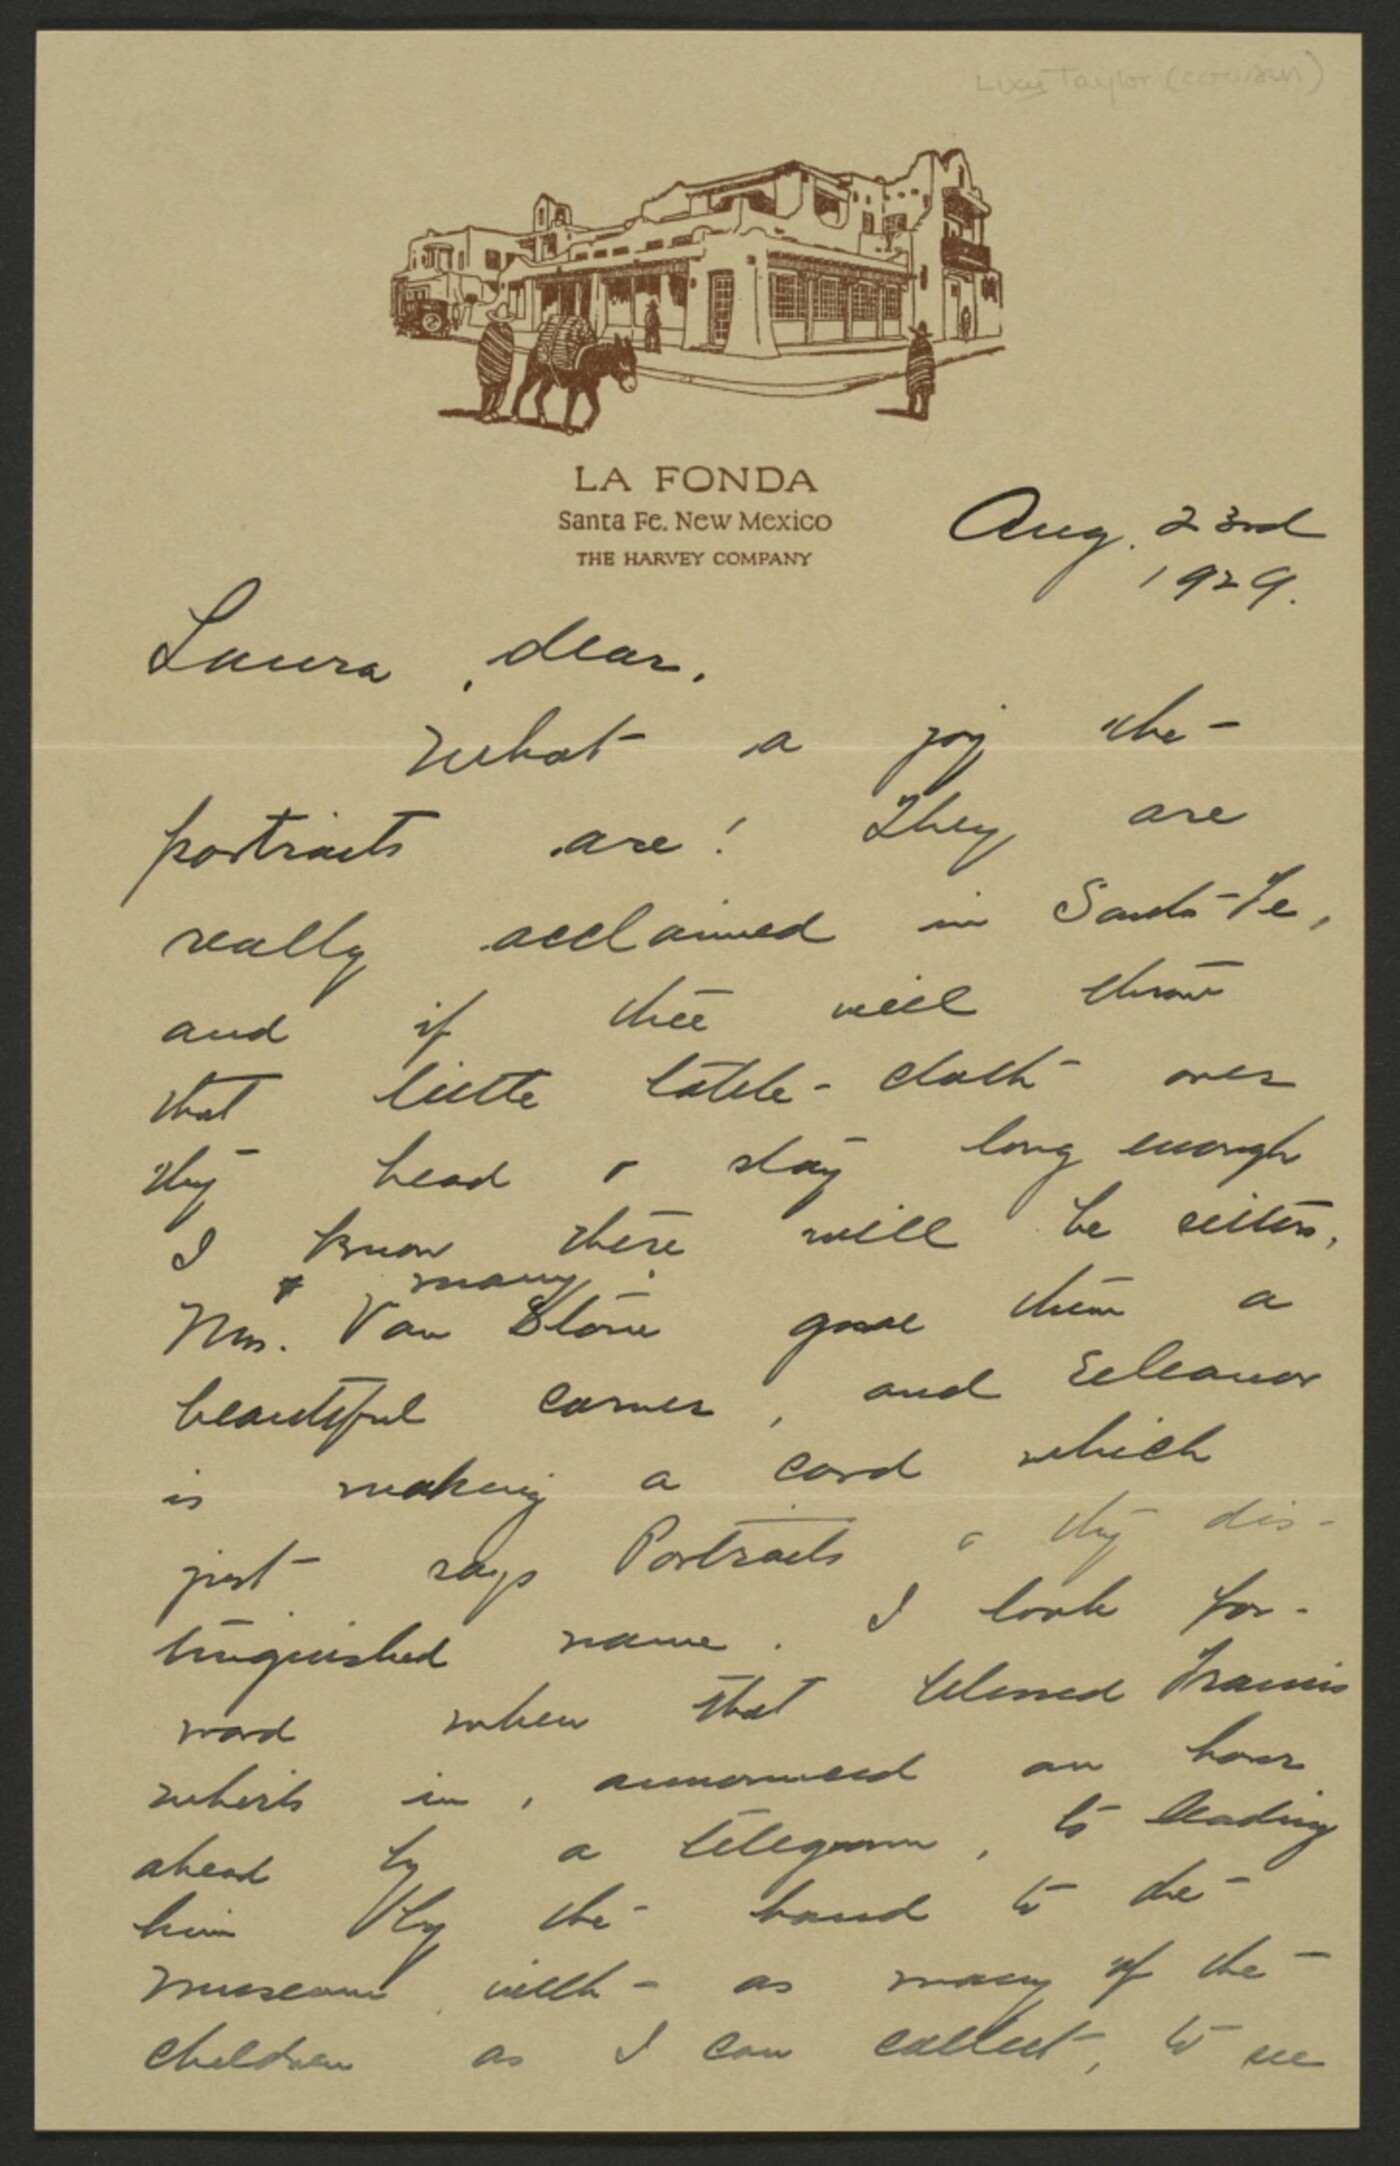 Lucy Taylor (cousin)
LA FONDA
Santa Fe. New Mexico
THE HARVEY COMPANY
Aug. 23rd
1929.
Laura, dear,
What a joy the
portraits are! They are
really acclaimed in Santa Fe,
and if thee will throw
that little table-cloth over
thy head & stay long enough
I know there will be sitters,
& many.
Mrs. Van Stone gave them a
beautiful corner, and Eleanor
is making a card which
just says Portraits & thy dis-
tinguished name. I look for-
ward when that blessed Francis
whirls in, announced an hour
ahead by a telegram, to leading
him by the hand to the
museum with as many of the
children as I can collect, to see